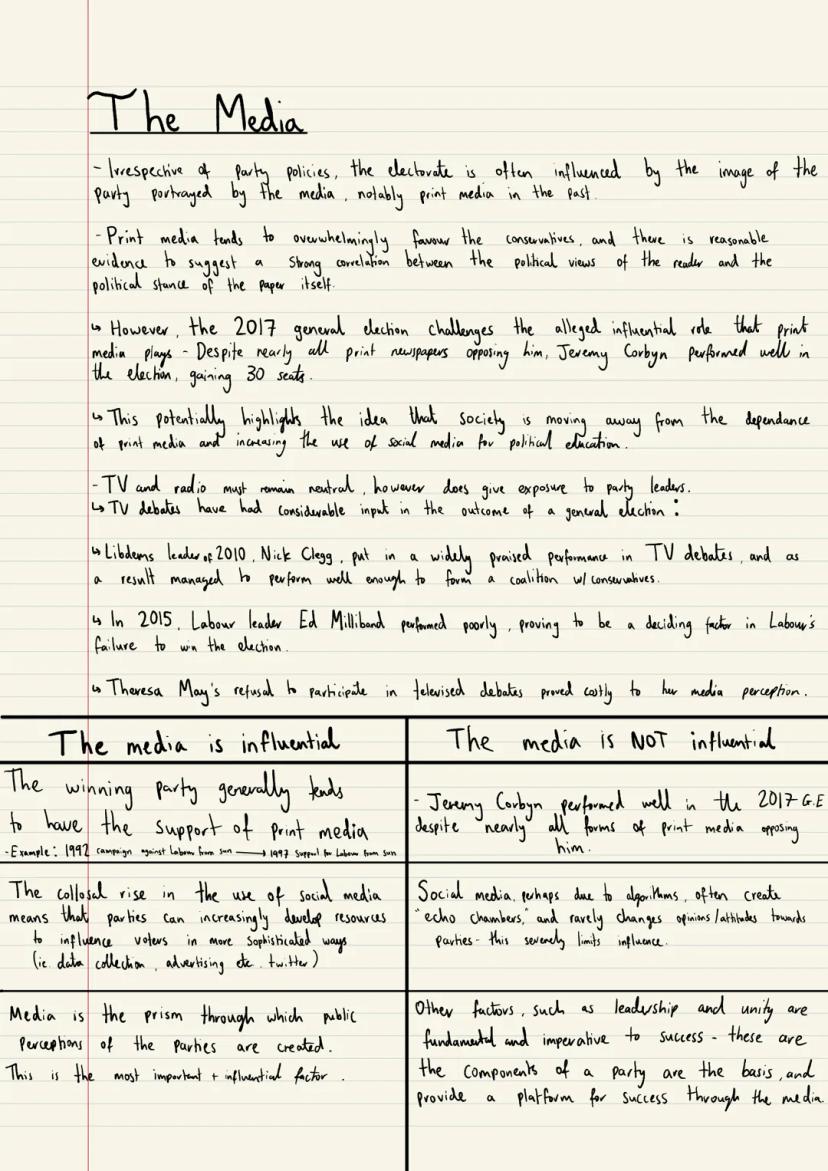 The Media
- Irrespective of party policies, the electorate is often influenced by the image of the
party portrayed by the media, notably print media in the past.
- Print media tends to overwhelmingly favour the conservatives, and there is reasonable
evidence to suggest a strong correlation between the political views of the reader and the
political stance of the paper itself.
↳ However, the 2017 general election challenges the alleged influential role that print
media plays - Despite nearly all print newspapers opposing him, Jeremy Corbyn performed well in
the election, gaining 30 seats.
↳ This potentially highlights the idea that society is moving away from the dependance
of print media and increasing the use of social media for political education.
- TV and radio must remain neutral, however does give exposure to party leaders.
↳ TV debates have had considerable input in the outcome of a general election:
↳ Libdems leader of 2010, Nick Clegg, put in a widely praised performance in TV debates, and as
a result managed to perform well enough to form a coalition w/ conservatives.
↳ In 2015, Labour leader Ed Milliband performed poorly, proving to be a deciding factor in Labour's
failure to win the election.
↳ Theresa May's refusal to participate in televised debates proved costly to her media perception.
The media is influential
The winning party generally tends
to have the support of print media
- Example: 1992 campaign against Labour from sun → 1997 Support for Labour from sun
The collosal rise in the use of social media
means that parties can increasingly develop resources
to influence voters in more sophisticated ways
(ie. data collection, advertising etc. twitter)
Media is the prism through which public
perceptions of the parties are created.
This is the most important + influential factor.
The media is NOT influential
- Jeremy Corbyn performed well in the 2017 G.E
despite nearly all forms of print media opposing
him.
Social media, perhaps due to algorithms, often create
"echo chambers," and rarely changes opinions/attitudes towards
parties - this severely limits influence.
Other factors, such as leadership and unity are
fundamental and imperative to success - these are
the components of a party are the basis, and
provide a platform for success through the media.